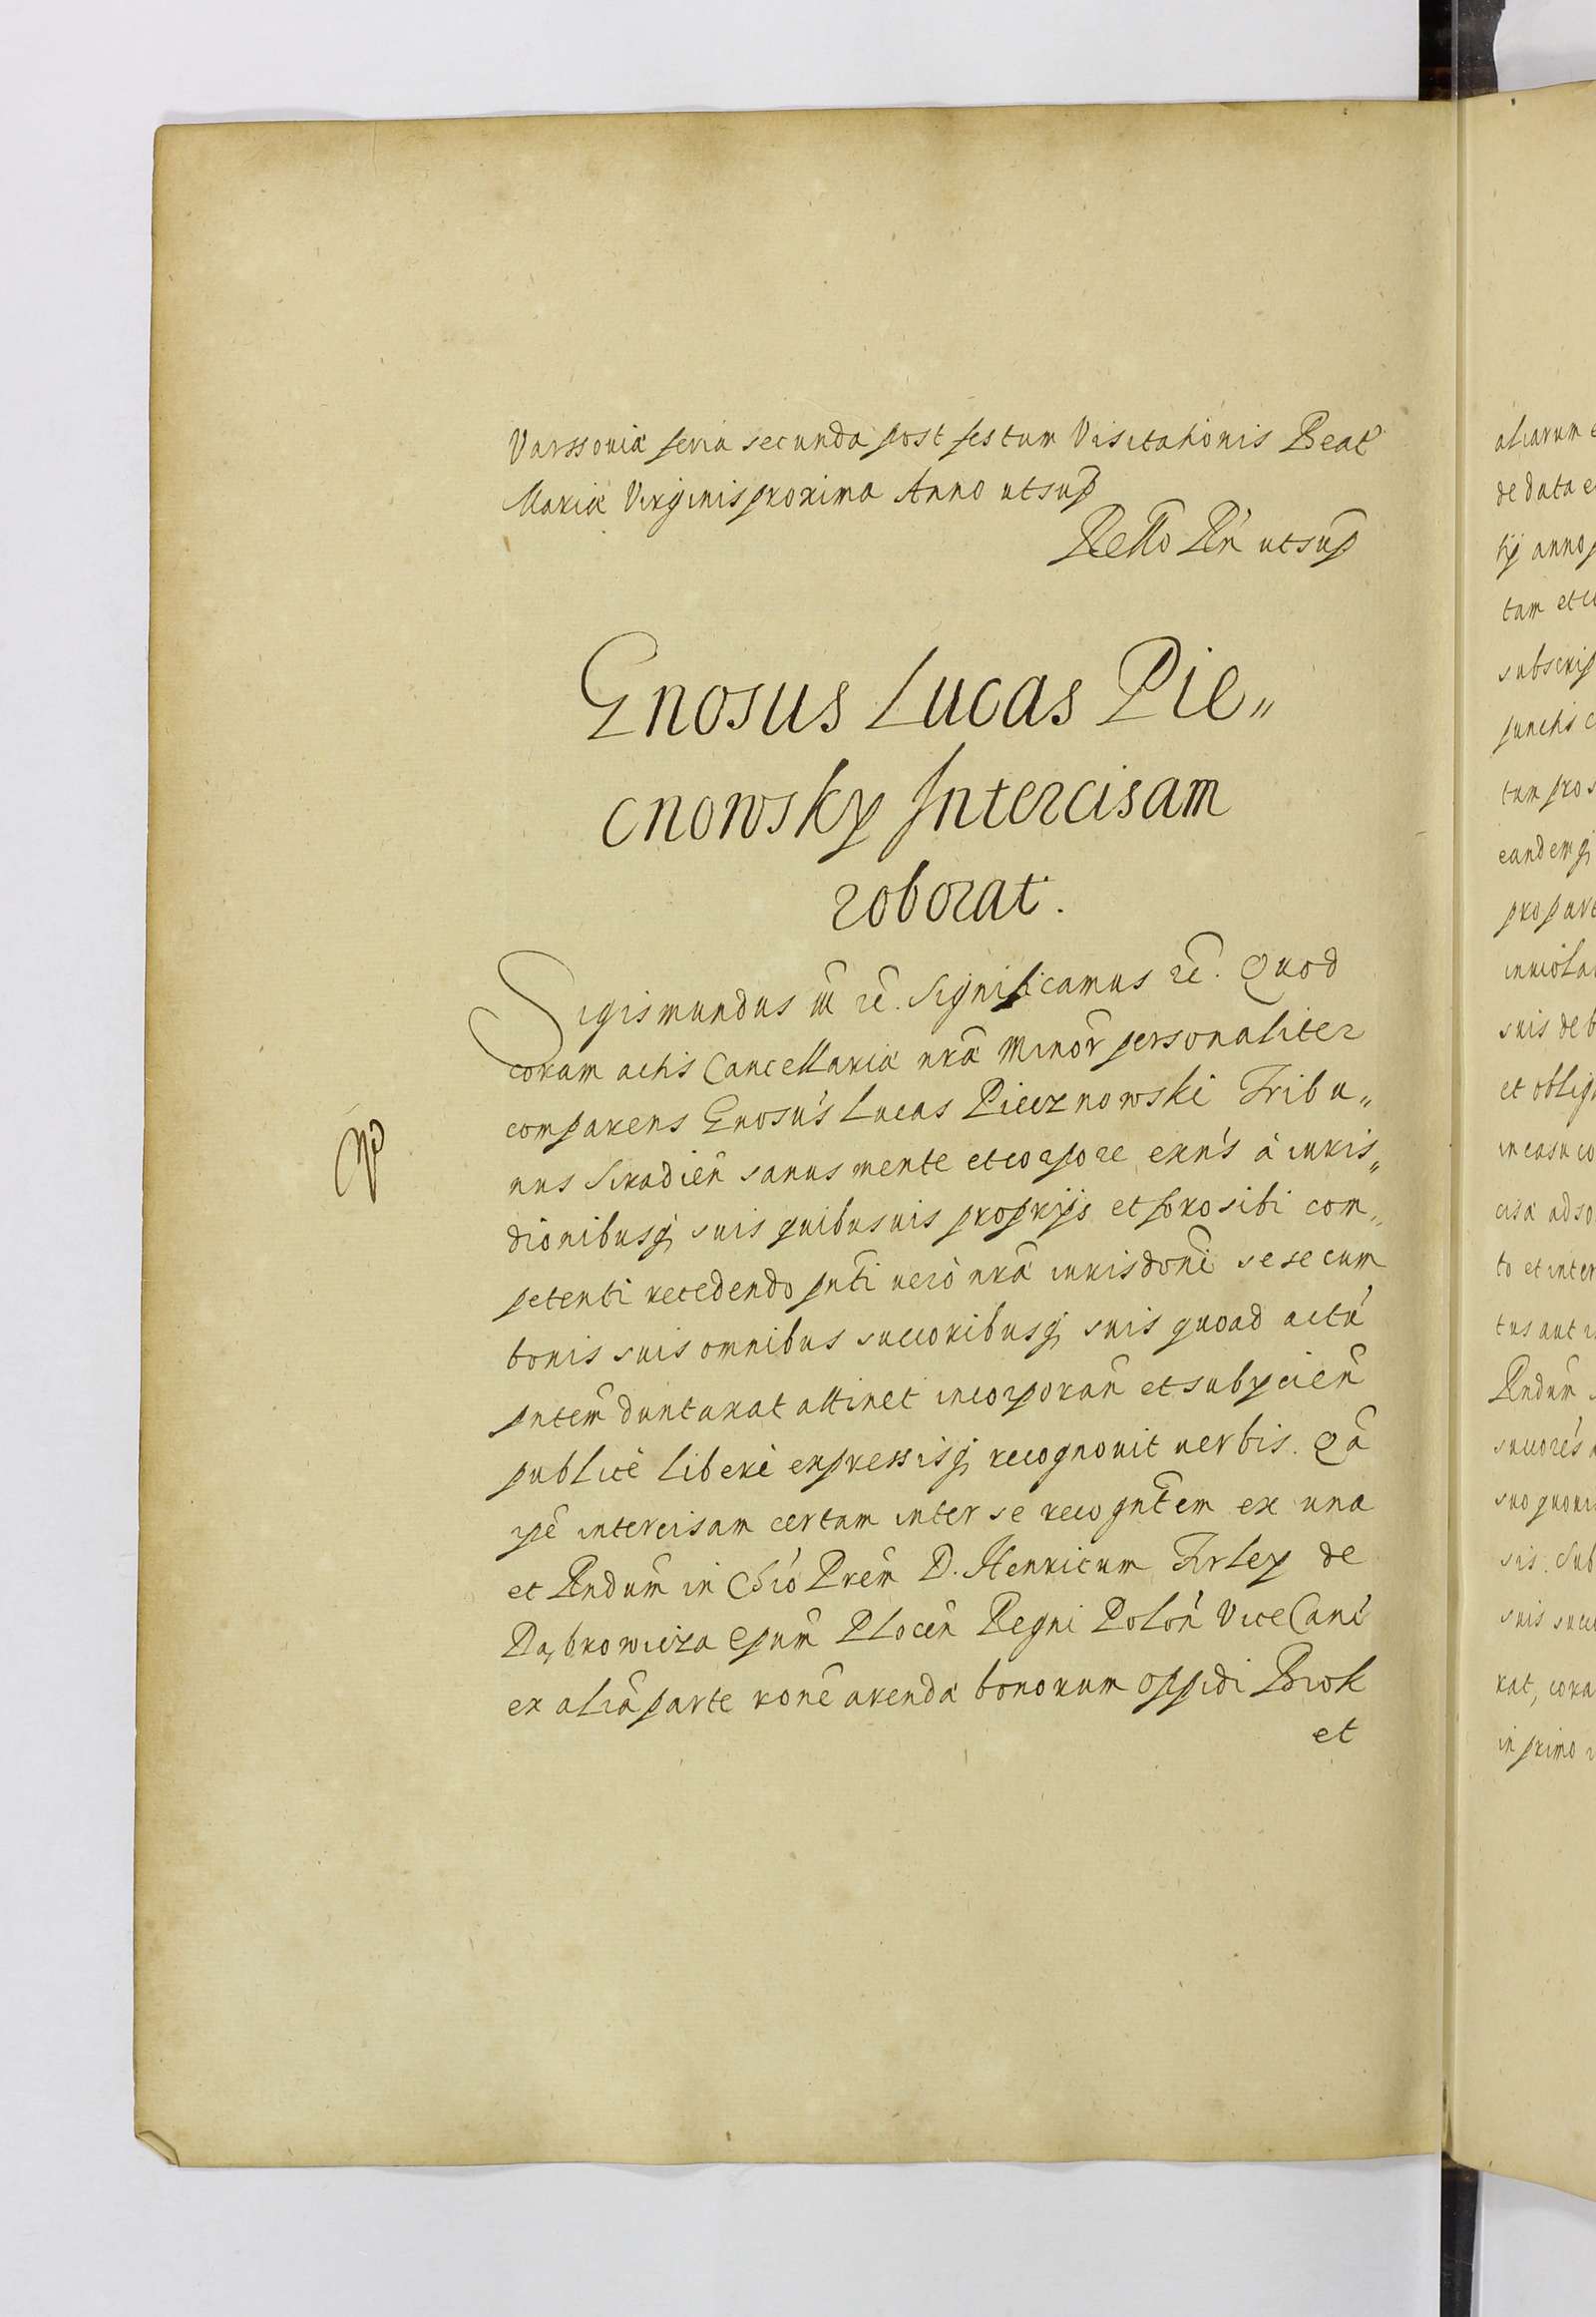 Varssouiæ feria secunda post festum Visitationis Beat̃
Mariæ Virginis proxima Anno ut sup̃
Rello Rń ut sup̃
Gnosus Lucas Pie„
cnowsky Intercisam
roborat.
Sigismundus iii rc̃. Significamus rc̃. Quod
coram actis Cancellariæ nrã Minor̃ personaliter
comparens Gnosús Lucas Piecznowski Tribu„
nus Siradień sanus mente et corpore exńs à iuris„
dionibusq; suis quibusuis proprijs et foro sibi com„
petenti recedendo pnti uerò nrã iurisdoni sese cum
bonis suis omnibus succoribusq; suis quoad actú
pntem̃ duntaxat attinet incorporañ et subycień
publicè liberè expressisq; recognouit uerbis. Qã
ipẽ intercisam certam inter se recognt̃em ex una
et Rndum̃ in Chŕo Prem̃ D. Henricum Firley de
Dąbrowicza Epum̃ Plocen̄ Regni Polóń ViceCanć
ex aliã parte ronẽ arendæ bonorum oppidi Brok
et
aliarum
de data e
tij anno p
tam et
subscrip
punctis c
tum pro s
eandemq;
propart
inuiola
suis de b
et oblig
in casu co
cisæ ad so
to et inter
tus aut i
Rndum̃
succorés
suo quoui
sis. Sub
suis succ
rat, cora
in primo